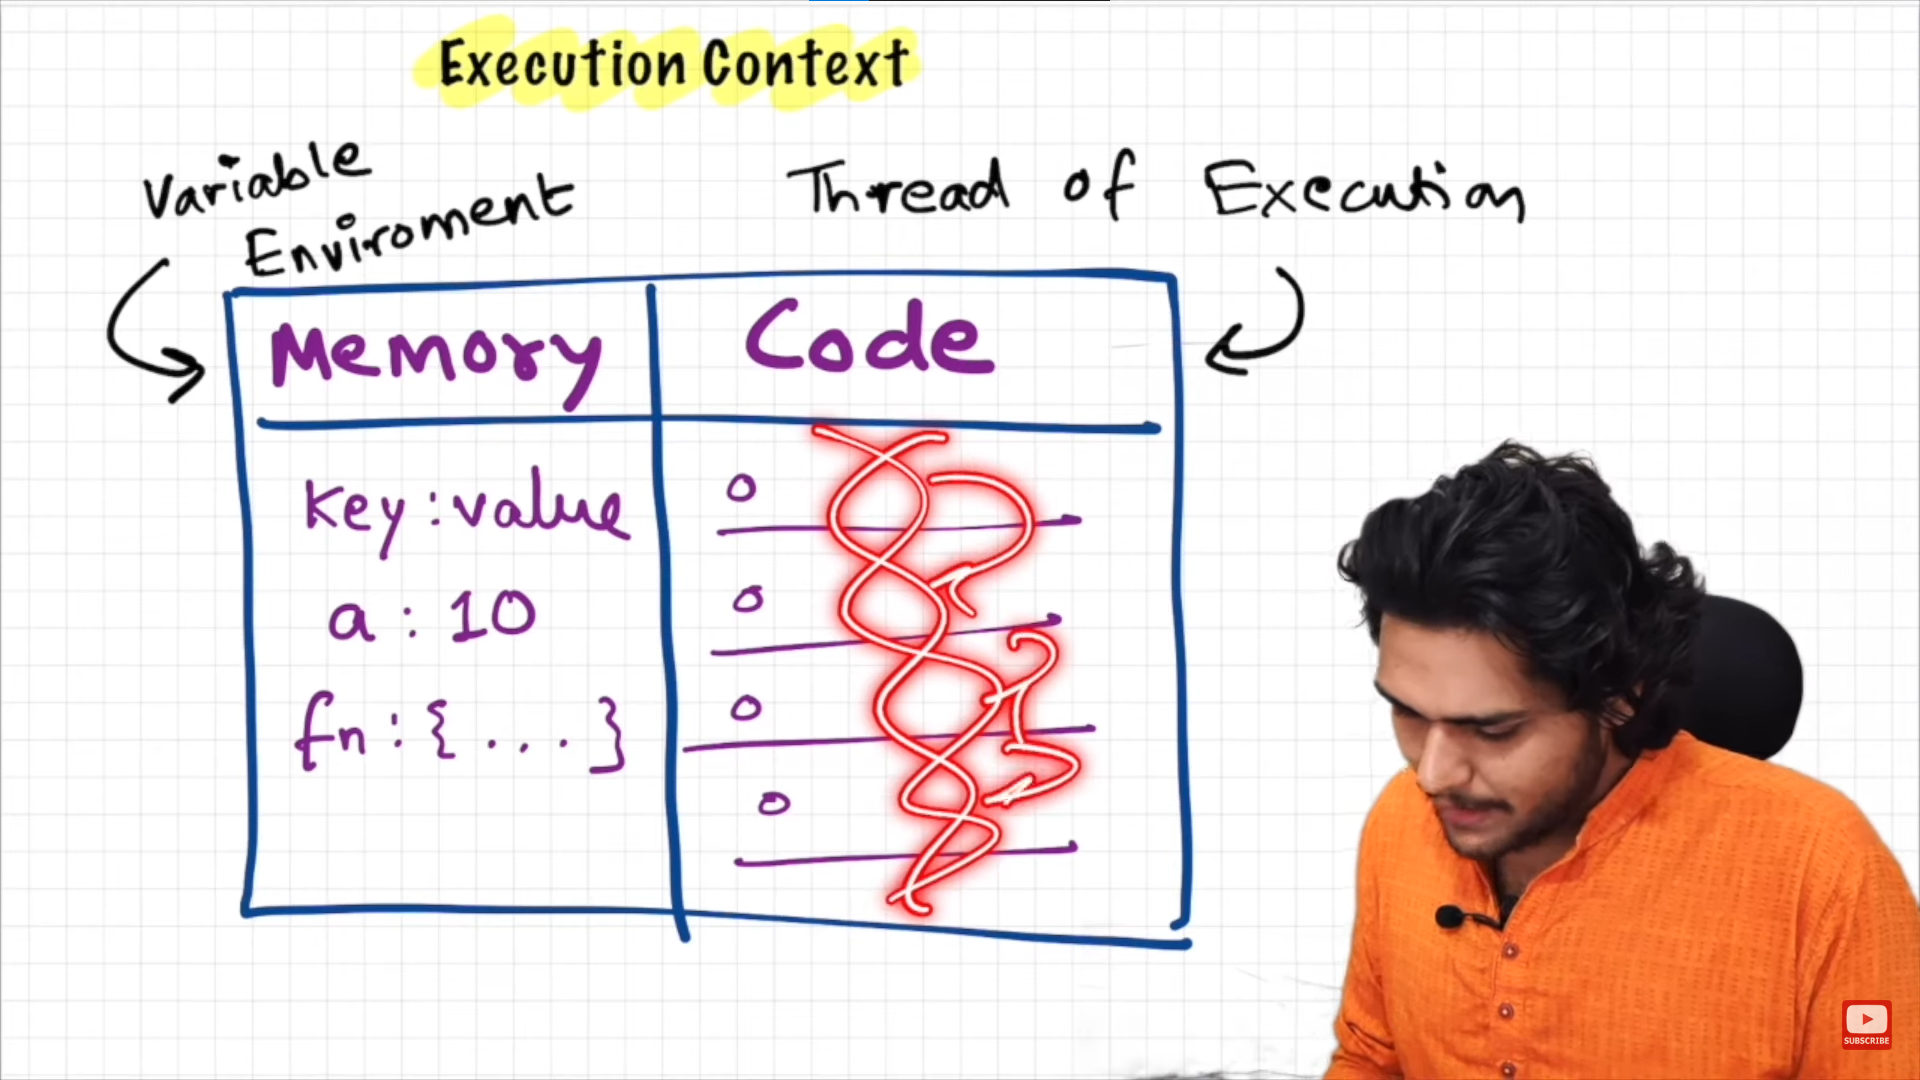 Execution Context
Variable
Enviroment
Thread of Execution
Memory
Code
key : value
a : 10
fn : { . . . }
o
o
o
o
SUBSCRIBE